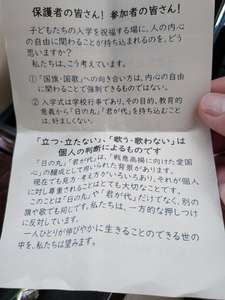 保護者の皆さん！ 参加者の皆さん！
子どもたちの入学を祝福する場に、人の内心
の自由に関わることが持ち込まれるのを、どう
思いますか？
私たちは、こう考えています。
①「国旗・国歌」への向き合い方は、内心の自由
に関わることで強制できるものではない。
② 入学式は学校行事であり、その目的、教育的
意義から「日の丸」「君が代」を持ち込むこと
は、好ましくない。
「立つ・立たない」、「歌う・歌わない」は
個人の判断によるものです
「日の丸」や「君が代」は、「戦意高揚に向けた愛国
心」の醸成として用いられた背景があります。
現在でも見方・考え方がいろいろあり、それが個人
に対し尊重されることはとても大切なことです。
このことは「日の丸」や「君が代」だけでなく、別の
旗や歌でも同じです。私たちは、一方的な押しつけ
に反対しています。
一人ひとりが伸びやかに生きることのできる世の
中を、私たちは望みます。